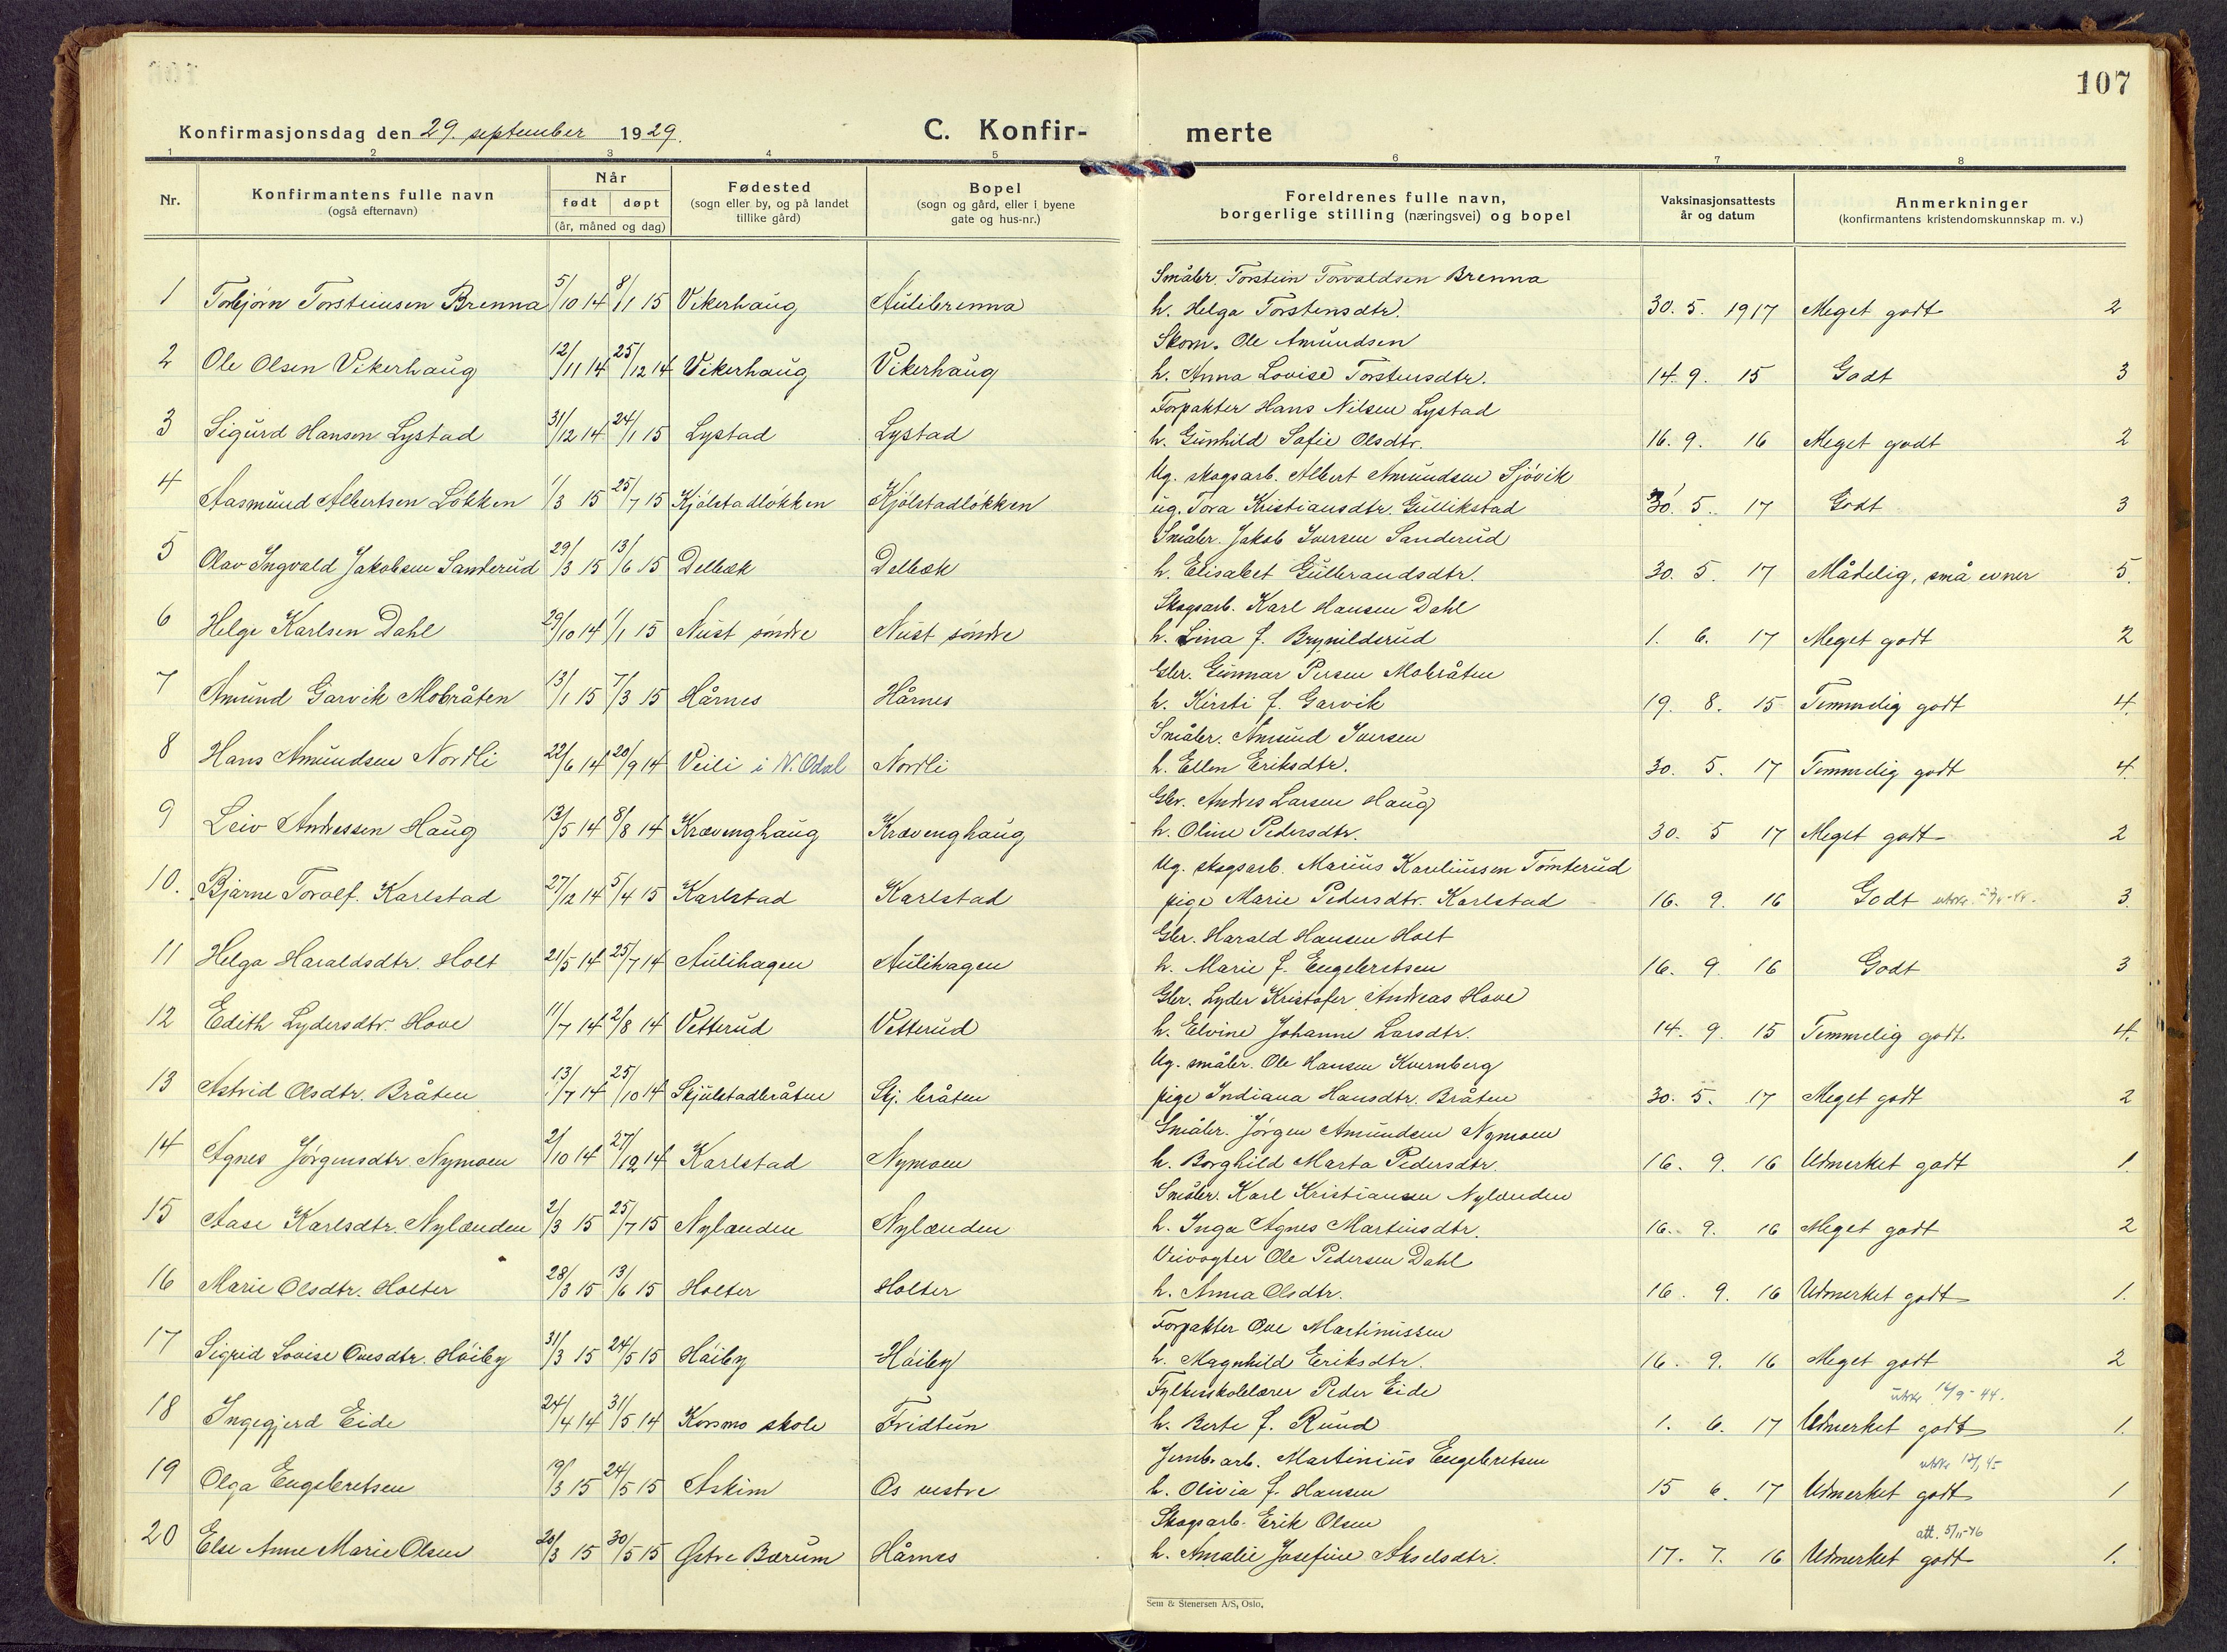 107
Konfirmasjonsdag den 29. september 1929.
C. Konfir- merte
1 2 3 4 5 6 7 8
Nr.
Konfirmantens fulle navn
(også efternavn)
Når
født døpt
(år, måned og dag)
Fødested
(sogn eller by, og på landet
tillike gård)
Bopel
(sogn og gård, eller i byene
gate og hus-nr.)
Foreldrenes fulle navn,
borgerlige stilling (næringsvei) og bopel
Vaksinasjonsattests
år og datum
Anmerkninger
(konfirmantens kristendomskunnskap m. v.)
Småbr. Torstein Torvaldsen Brenna
1 Torbjørn Torsteinsen Brenna 5/10 14 8/1 15 Vikerhaug Aulibrenna h. Helga Torstensdtr. 30. 5. 1917 Meget godt 2
Skom. Ole Amundsen
2 Ole Olsen Vikerhaug 12/11 14 25/12 14 Vikerhaug Vikerhaug h. Anna Lovise Torstensdtr. 14. 9. 15 Godt 3
Forpakter Hans Nilsen Lystad
3 Sigurd Hansen Lystad 31/12 14 24/1 15 Lystad Lystad h. Gunhild Sofie Olsdtr. 16. 9. 16 Meget godt 2
Ug. skogsarb. Albert Amundsen Sjövik
4 Aasmund Albertsen Løkken 1/3 15 25/7 15 Kjølstadløkken Kjølstadløkken ug. Tora Kristiansdtr. Gullikstad 30. 5. 17 Godt 3
Småbr. Jakob Iversen Sanderud
5 Olav Ingvald Jakobsen Sanderud 29/3 15 13/6 15 Delbæk Delbæk h. Elisabet Gulbrandsdtr. 30. 5. 17 Mådelig, små evner 5.
Skogsarb. Karl Hansen Dahl
6 Helge Karlsen Dahl 29/10 14 1/1 15 Nust søndre Nust søndre h. Lina f. Brynilderud 1. 6. 17 Meget godt 2
Gbr. Gunnar Persen Mobråten
7 Amund Garvik Mobråten 13/1 15 7/3 15 Hårnes Hårnes h. Kirsti f. Garvik 19. 8. 15 Temmelig godt 4.
Småbr. Amund Iversen
8 Hans Amundsen Nordli 22/6 14 20/9 14 Veili i N. Odal Nordli h. Ellen Eriksdtr. 30. 5. 17 Temmelig godt 4.
Gbr. Andres Larsen Haug
9 Leiv Andressen Haug 12/5 14 8/8 14 Krævenghaug Krævenghaug h. Oline Pedersdtr. 30. 5 17 Meget godt 2
Ug. skogsarb. Marius Kareliussen Tømterud
10. Bjarne Torolf. Karlstad 27/12 14 5/4 15 Karlstad Karlstad pige Marie Pedersdtr. Karlstad 16. 9. 16 Godt 3.
Gbr. Harald Hansen Holt
11 Helga Haraldsdtr. Holt 21/5 14 25/7 14 Aulihagen Aulihagen h. Marie f. Engebretsen 16. 9. 16 Godt 3
Gbr. Lyder Kristofer Andreas Hove
12 Edith Lydersdtr. Hove 11/7 14 2/8 14 Vetterud Vetterud h. Elvine Johanne Larsdtr. 14. 9. 15 Temmelig godt. 4.
Ug. småbr. Ole Hansen Kvernberg
13 Astrid Olsdtr. Bråten 13/7 14 25/10 14 Skjulstadbråten Skj. bråten pige Indiana Hansdtr. Bråten 30. 5. 17 Meget godt 2
Småbr. Jørgen Amundsen Nymoen
14 Agnes Jørgensdtr. Nymoen 2/10 14 27/12 14 Karlstad Nymoen h. Borghild Marta Pedersdtr. 16. 9. 16 Udmerket godt 1.
Småbr. Karl Kristiansen Nylænden
15 Aase Karlsdtr. Nylænden 2/3 15 25/7 15 Nylænden Nylænden h. Inga Agnes Martinsdtr. 16. 9. 16 Meget godt 2
Veivogter Ole Pedersen Dahl
16 Marie Olsdtr. Holter 28/3 15 13/6 15 Holter Holter h. Anna Olsdtr. 16. 9. 16 Udmerket godt 1.
Forpakter Ove Martinussen
17 Sigrid Lovise Ovesdtr. Høiby 31/3 15 24/5 15 Høiby Høiby h. Magnhild Eriksdtr. 16. 9. 16 Meget godt 2
Fylkesskolelærer Peder Eide utskr. 14/9-44.
18 Ingegjerd Eide 24/4 14 31/5 14 Korsmo skole Fridtun h. Berte f. Rund 1. 6. 17 Udmerket godt 1.
Jernb. arb. Martinius Engebretsen
19 Olga Engebretsen 19/3 15 24/5 15 Askim Os vestre h. Olivia f. Hansen 15 6. 17 Udmerket godt 1
Skogsarb. Erik Olsen att. 5/11-46
20 Else Anne Marie Olsen 20/3 15 30/5 15 Østre Bærum Hårnes h. Amalie Josefine Akselsdtr. 17. 7. 16 Udmerket godt 1.
Sem & Stenersen A/S, Oslo.